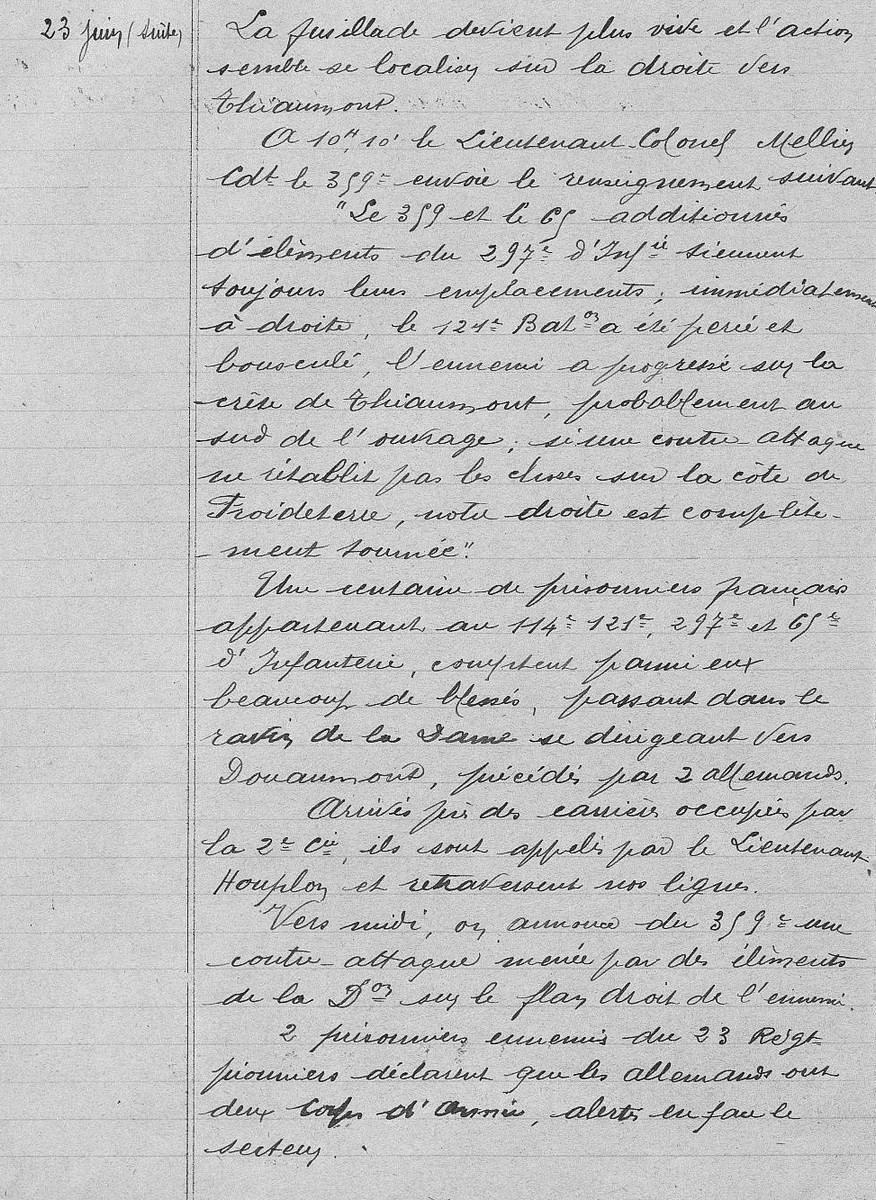 23 juin (suite)
La fusillade devient plus vive et l'action
semble se localiser sur la droite vers
Thiaumont.
A 10h, 10' le Lieutenant-Colonel Mellier
Cdt le 359e envoie le renseignement suivant
"Le 359 et le 65 additionnés
d'éléments du 297e d'Infie tiennent
toujours leurs emplacements ; immédiatement
à droite, le 121e Baton a été percé et
bousculé, l'ennemi a progressé sur la
crête de Thiaumont, probablement au
sud de l'ouvrage ; si une contre-attaque
ne rétablit pas les choses sur la côte de
Froideterre, notre droite est complète-
-ment tournée".
Une centaine de prisonniers français
appartenant au 114e 121e, 297e et 65e
d'Infanterie, comptent parmi eux
beaucoup de blessés, passant dans le
ravin de la Dame se dirigeant vers
Douaumont, précédés par 2 allemands.
Arrivés près des carrières occupées par
la 2e Cie, ils sont appelés par le Lieutenant
Houplon et retraversent nos lignes.
Vers midi, on annonce du 359e une
contre-attaque menée par des éléments
de la Don sur le flanc droit de l'ennemi.
2 prisonniers ennemis du 23 Régt
pionniers déclarent que les allemands ont
deux corps d'armée, alertés en face le
secteur.